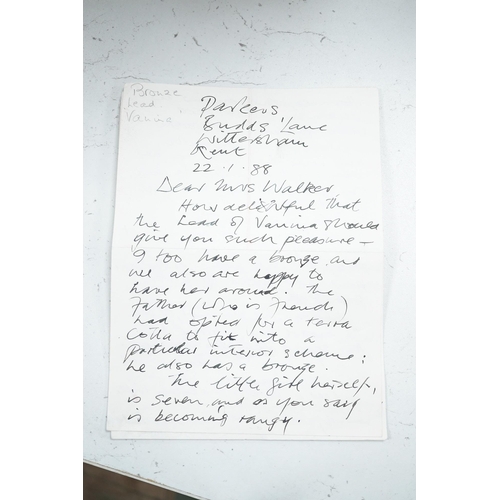 Bronze
Head
Vanina
Parkers
Budds' Lane
Wittersham
Kent
22.1.88
Dear Mrs Walker,
How delightful that
the Head of Vanina should
give you such pleasure –
I too have a bronze and
we also are happy to
have her around. The
Father (who is French)
had opted for a terra
cotta to fit into a
particular interior scheme;
he also has a bronze.
The little girl herself,
is seven and as you say
is becoming rangy.